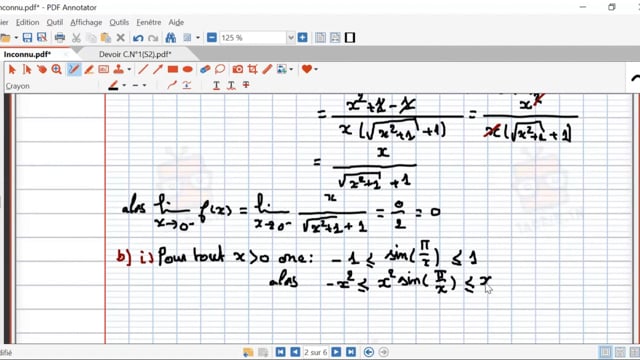 nconnu.pdf* - PDF Annotator
ichier Edition Ajout Affichage Outils Fenêtre Aide
125 %
Inconnu.pdf* Devoir C.N°1(S2).pdf*
Crayon
= x²+1-1 / x(√x²+1 +1) = x² / x(√x²+1 +1)
= x / √x²+1 +1
alors lim x→0⁻ f(x) = lim x→0⁻ x / √x²+1 +1 = 0/2 = 0
b) i) Pour tout x>0 ona: -1 ≤ sin(π/x) ≤ 1
alors -x² ≤ x² sin(π/x) ≤ x
2 sur 6